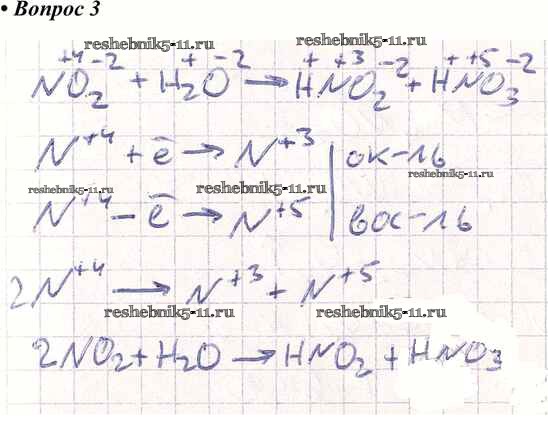 • Вопрос 3
reshebnik5-11.ru reshebnik5-11.ru
+4 -2 + -2 + +3 -2 + +5 -2
NO₂ + H₂O → HNO₂ + HNO₃
N⁺⁴ + ē → N⁺³ | ок-ль
reshebnik5-11.ru
reshebnik5-11.ru reshebnik5-11.ru
N⁺⁴ - ē → N⁺⁵ | вос-ль
2N⁺⁴ → N⁺³ + N⁺⁵
reshebnik5-11.ru reshebnik5-11.ru
2NO₂ + H₂O → HNO₂ + HNO₃